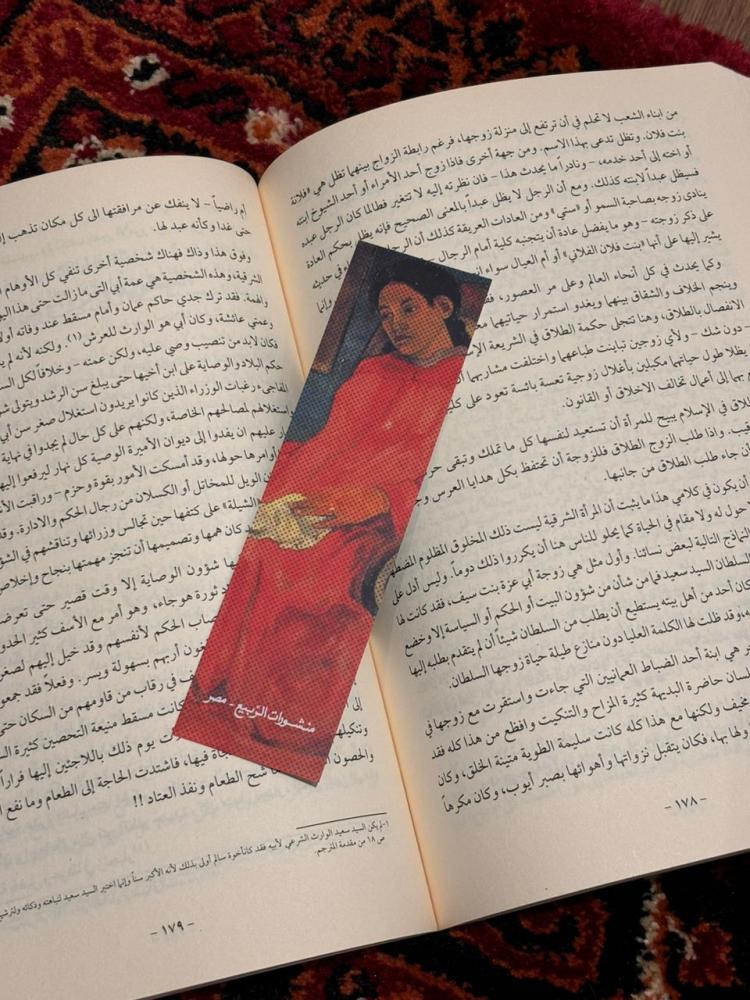 من ابناء الشعب لا تحلم في أن ترتفع إلى منزلة زوجها، فرغم رابطة الزواج بينهما تظل هي «فلانة
بنت فلان. وتظل تدعى بهذا الاسم. ومن جهة أخرى فاذا زوج أحد الأمراء أو أحد الشيوخ ابنته
أو اخته إلى أحد خدمه، - ونادراً ما يحدث هذا - فان نظرته إليه لا تتغير فطالما كان الرجل عبده
فسيظل عبداً لابنته كذلك. ومع أن الرجل لا يظل عبداً بالمعنى الصحيح فإنه يظل بحكم العادة
ينادى زوجه بصاحبة السمو أو «ستي» ومن العادات العريقة كذلك أن الرجل في حديثه
على ذكر زوجته - وهو ما يفضل عادة أن يتجنبه كلية أمام الرجال وإنما
يشير إليها على أنها «بنت فلان الفلاني» أو أم العيال سواء
وكما يحدث في كل أنحاء العالم وعلى مر العصور،
وينجم الخلاف والشقاق بينها ويغدو استمرار حياتيهما
الانفصال بالطلاق، وهنا تتجلى حكمة الطلاق في الشريعة
دون شك - ولأي زوجين تباينت طباعهما واختلفت مشاربهما
يظلا طول حياتهما مكبلين بأغلال زوجية تعسة بائسة تعود على
بهما إلى أعمال تخالف الاخلاق أو القانون.
في الإسلام يبيح للمرأة أن تستعيد لنفسها كل ما تملك وتبقى
واذا طلب الزوج الطلاق فللزوجة أن تحتفظ بكل هدايا العرس
أن جاء طلب الطلاق من جانبها.
أن يكون في كلامي هذا ما يثبت أن المرأة الشرقية ليست ذلك المخلوق المظلوم
حول له ولا مقام في الحياة كما يحلو للناس هنا أن يكرروا ذلك دوماً. وليس أدل على
النماذج التالية لبعض نسائنا. وأول مثل هي زوجة أبي عزة بنت سيف، فقد كانت لها
السلطان السيد سعيد فما من شأن من شؤون البيت أو الحكم أو السياسة إلا وخضع
كان أحد من أهل بيته يستطيع أن يطلب من السلطان شيئاً أن لم يتقدم بطلبه إليها
وقد ظلت لها الكلمة العليا دون منازع طيلة حياة زوجها السلطان.
هي ابنة أحد الضباط العمانيين التي جاءت واستقرت مع زوجها في
حاضرة البديهة كثيرة المزاح والتنكيت وافظع من هذا كله فقد
ولكنها مع هذا كله كانت سليمة الطوية متينة الخلق، وكان
فكان يتقبل نزواتها وأهوائها بصبر أيوب، وكان مكرهاً
- ١٧٨ -
أم راضياً - لا ينفك عن مرافقتها الى كل مكان تذهب
حتى غدا وكأنه عبد لها.
وفوق هذا وذاك فهناك شخصية أخرى تنفي كل الأوهام
الشرقية، وهذه الشخصية هي عمة أبي التي ما زالت حتى هذا
والهمة. فقد ترك جدي حاكم عمان وأمام مسقط عند وفاته
وعمتي عائشة، وكان أبي هو الوارث للعرش (١). ولكنه لم
فكان لابد من تنصيب وصي عليه، ولكن عمته - وخلافاً لكل
حكم البلاد والوصاية على ابن أخيها حتى يبلغ سن الرشد
رغبات الوزراء الذين كانوا يريدون استغلال صغر سن أبي
لمصالحهم الخاصة، ولكنهم على كل حال لم يجدوا في نهاية
عليهم ان يفدوا إلى ديوان الأميرة الوصية كل نهار ليرفعوا إليها
أوامرها حولها، وقد أمسكت الأمور بقوة وحزم - وراقبت
الويل للمخاتل أو الكسلان من رجال الحكم والادارة.
«الشيلة» على كتفها حين تجالس وزرائها وتناقشهم في
كان همها وتصميمها أن تنجز مهمتها بنجاح وإخلاص
شؤون الوصاية إلا وقت قصير حتى
ثورة هوجاء، وهو أمر مع الأسف كثير
الحكم لأنفسهم وقد خيل إليهم
أربهم بسهولة ويسر. وفعلاً فقد
في رقاب من قاومهم من السكان حتى
كانت مسقط منيعة التحصين كثيرة
يوم ذلك باللاجئين إليها فراراً
فيها، فاشتدت الحاجة إلى الطعام وما نفع
والحصون شح الطعام ونفذ العتاد !!
١- لم يكن السيد سعيد الوارث الشرعي لأبيه فقد كان أخوه سالم أولى بذلك لأنه الأكبر سناً وإنما اختير السيد سعيد لنباهته وذكائه
ص ١٨ من مقدمة المترجم.
- ١٧٩ -
منشورات الربيع - مصر